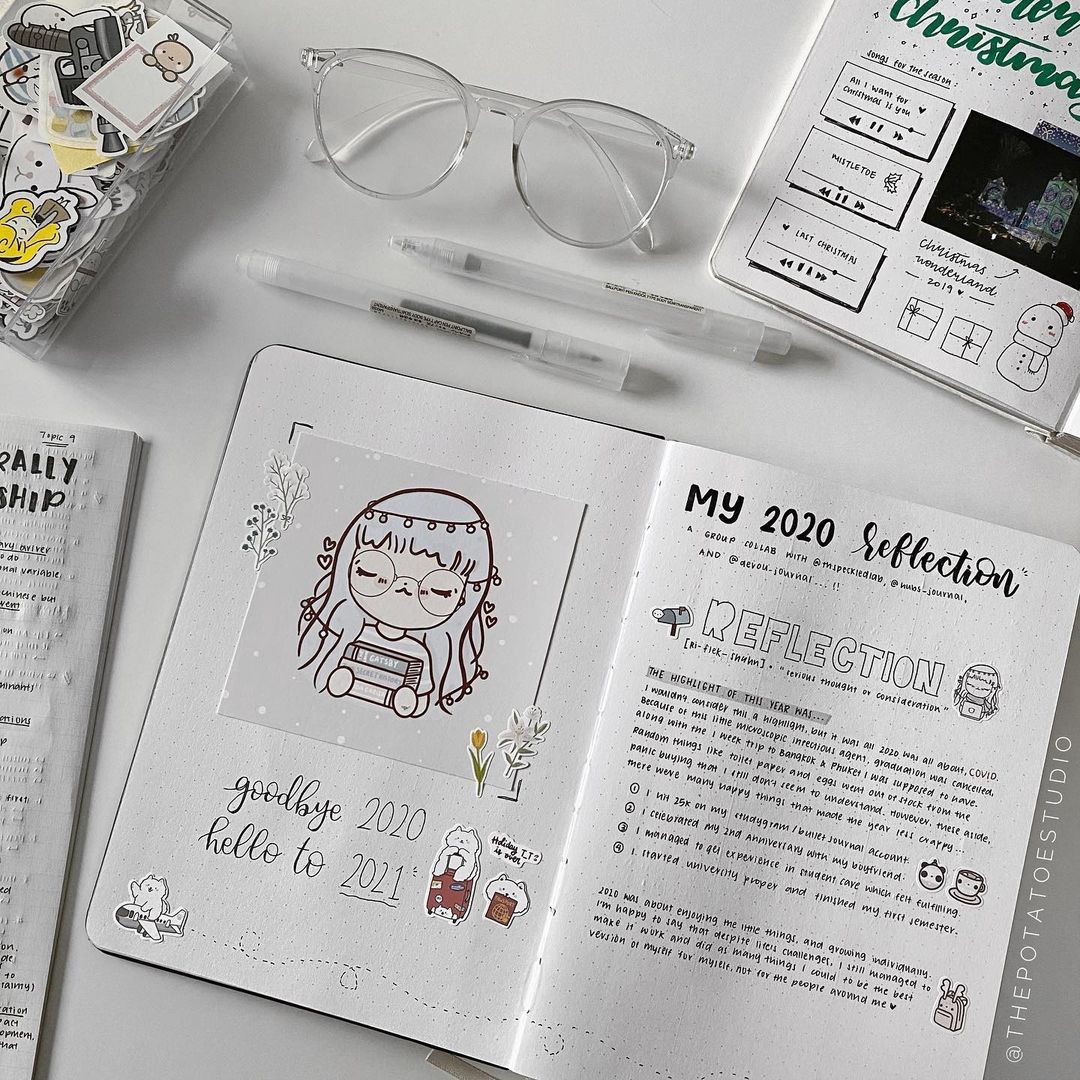 Merry
Christmas
songs for the season:
All I want for
Christmas is you
MISTLETOE
LAST CHRISTMAS
Christmas
wonderland
2019
BALLPOINT PEN CAP TYPE
Topic 9
RALLY
SHIP
do
onal variable,
chinese but
on
minants'
ations
first
on,
de
to
ation
pact
that
GATSBY
SECRET HISTORY
goodbye 2020
hello to 2021
Holiday
is over!
PASSPORT
MY 2020 reflection
A GROUP COLLAB WITH @thspeckledlab, @nubs-journal,
AND @aevou_journal ... !!
REFLECTION
[Ri-flek-shuhn] • "serious thought or consideration"
THE HIGHLIGHT OF THIS YEAR WAS...
I wouldn't consider this a highlight, but it was all 2020 was all about, COVID.
Because of this little microscopic infectious agent, graduation was cancelled,
along with the 1 week trip to Bangkok & Phuket I was supposed to have.
Random things like toilet paper and eggs went out of stock from the
panic buying that I still don't seem to understand. However, these aside,
there were many happy things that made the year less crappy...
① I hit 25k on my studygram / bullet journal account.
② I celebrated my 2nd Anniversary with my boyfriend.
③ I managed to get experience in student care which felt fulfilling.
④ I started university proper and finished my first semester.
2020 was about enjoying the little things, and growing individually.
I'm happy to say that despite life's challenges, I still managed to
make it work and did as many things I could to be the best
version of myself for myself, not for the people around me ♥
@THEPOTATOESTUDIO